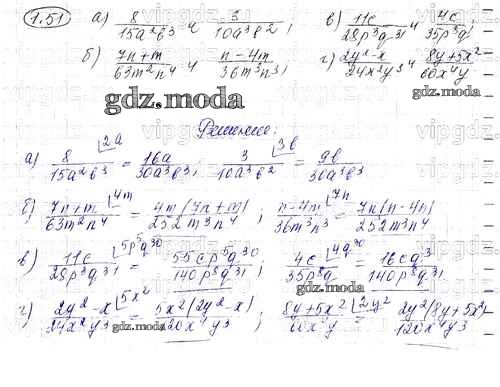 7.51 а) 8/15a²b³ и 3/10a³b²; в) 11c/28p³q³¹ и 4c/35p⁸q;
б) 7n+m/63m²n⁴ и n-4m/36m³n³; г) 2y²-x/24x²y³ и 8y+5x²/60x⁴y
gdz.moda
Решение:
а) 8/15a²b³ ⌊2a = 16a/30a³b³; 3/10a³b² ⌊3b = 9b/30a³b³
б) 7n+m/63m²n⁴ ⌊4m = 4m(7n+m)/252m³n⁴; n-4m/36m³n³ ⌊7n = 7n(n-4m)/252m³n⁴
в) 11c/28p³q³¹ ⌊5p⁵q³⁰ = 55cp⁵q³⁰/140p⁸q³¹; 4c/35p⁸q ⌊4q³⁰ = 16cq³/140p⁸q³¹
г) 2y²-x/24x²y³ ⌊5x² = 5x²(2y²-x)/120x⁴y³; 8y+5x²/60x⁴y ⌊2y² = 2y²(8y+5x²)/120x⁴y³
gdz.moda